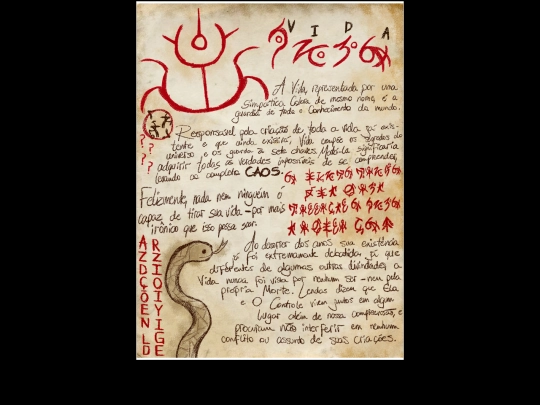 V I D A
A Vida, representada por uma
simpática Cobra de mesmo nome, é a
guardiã de todo o Conhecimento do mundo.
Responsável pela criação de toda a vida já exis-
tente e que ainda existirá, Vida compõe os segredos do
universo e os guarda a sete chaves. Matá-la significaria
adquirir todas as verdades impossíveis de se compreender,
levando ao completo CAOS.
Felizmente, nada nem ninguém é
capaz de tirar sua vida - por mais
irônico que isso possa soar.
Ao decorrer dos anos sua existência
já foi extremamente debatida, já que
diferentes de algumas outras divindades, a
Vida nunca foi vista por nenhum ser - nem pela
própria Morte. Lendas dizem que Ela
e O Controle vivem juntos em algum
lugar além de nossa compreensão, e
procuram não interferir em nenhum
conflito ou assunto de suas criações.
? ?
? ?
? ?
A R
Z Z
D I
Ç O
Õ I
E Y
N I
L G
D E